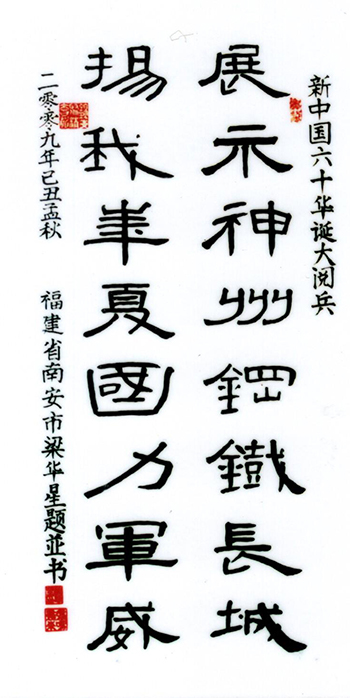 新中国六十华诞大阅兵
展示神州鋼鐵長城
揚我華夏國力軍威
二零零九年己丑孟秋 福建省南安市梁华星题並书